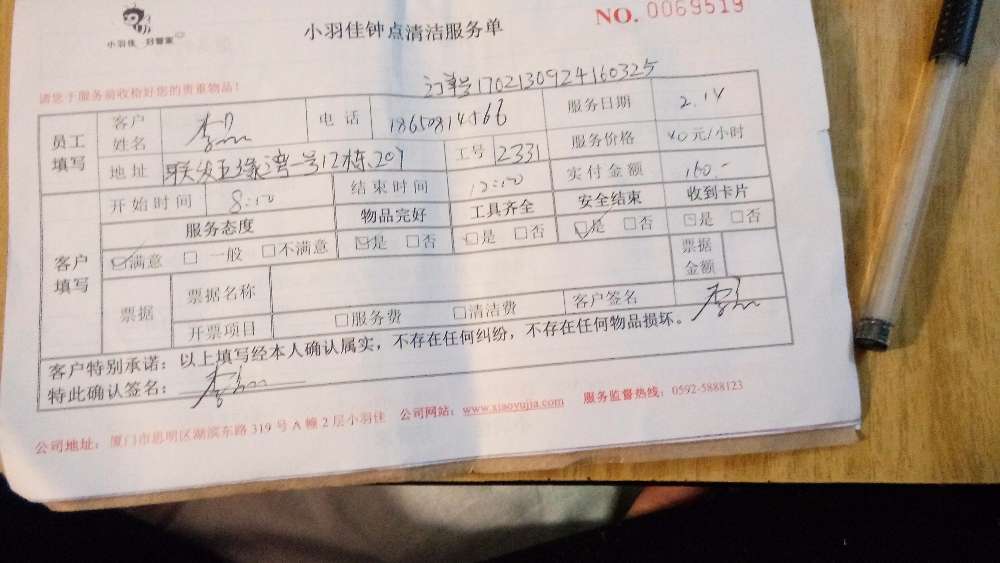 小羽佳 好管家
小羽佳钟点清洁服务单
NO. 0069519
请您于服务前收检好您的贵重物品!
订单号1702130924160325
员工填写 客户姓名 李 电话 服务日期 2.14
地址 联发五缘湾一号12栋207 工号 2331 服务价格 40元/小时
开始时间 8:00 结束时间 12:00 实付金额 160.-
客户填写 服务态度 物品完好 工具齐全 安全结束 收到卡片
☑满意 □一般 □不满意 ☑是 □否 ☑是 □否 ☑是 □否 ☑是 □否
票据 票据名称 票据金额
开票项目 □服务费 □清洁费 客户签名 李
客户特别承诺:以上填写经本人确认属实,不存在任何纠纷,不存在任何物品损坏。
特此确认签名: 李
公司地址:厦门市思明区湖滨东路 319 号 A 幢 2 层小羽佳 公司网站:www.xiaoyujia.com 服务监督热线:0592-5888123